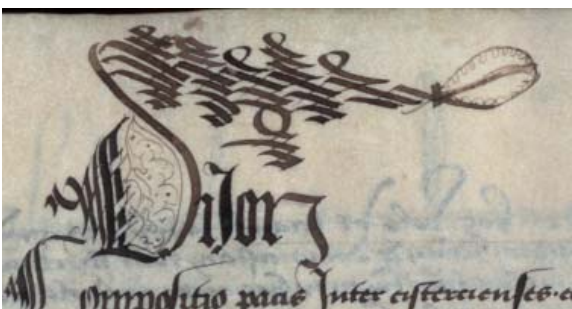 Dijon
Compositio pacis Inter cistercienses·